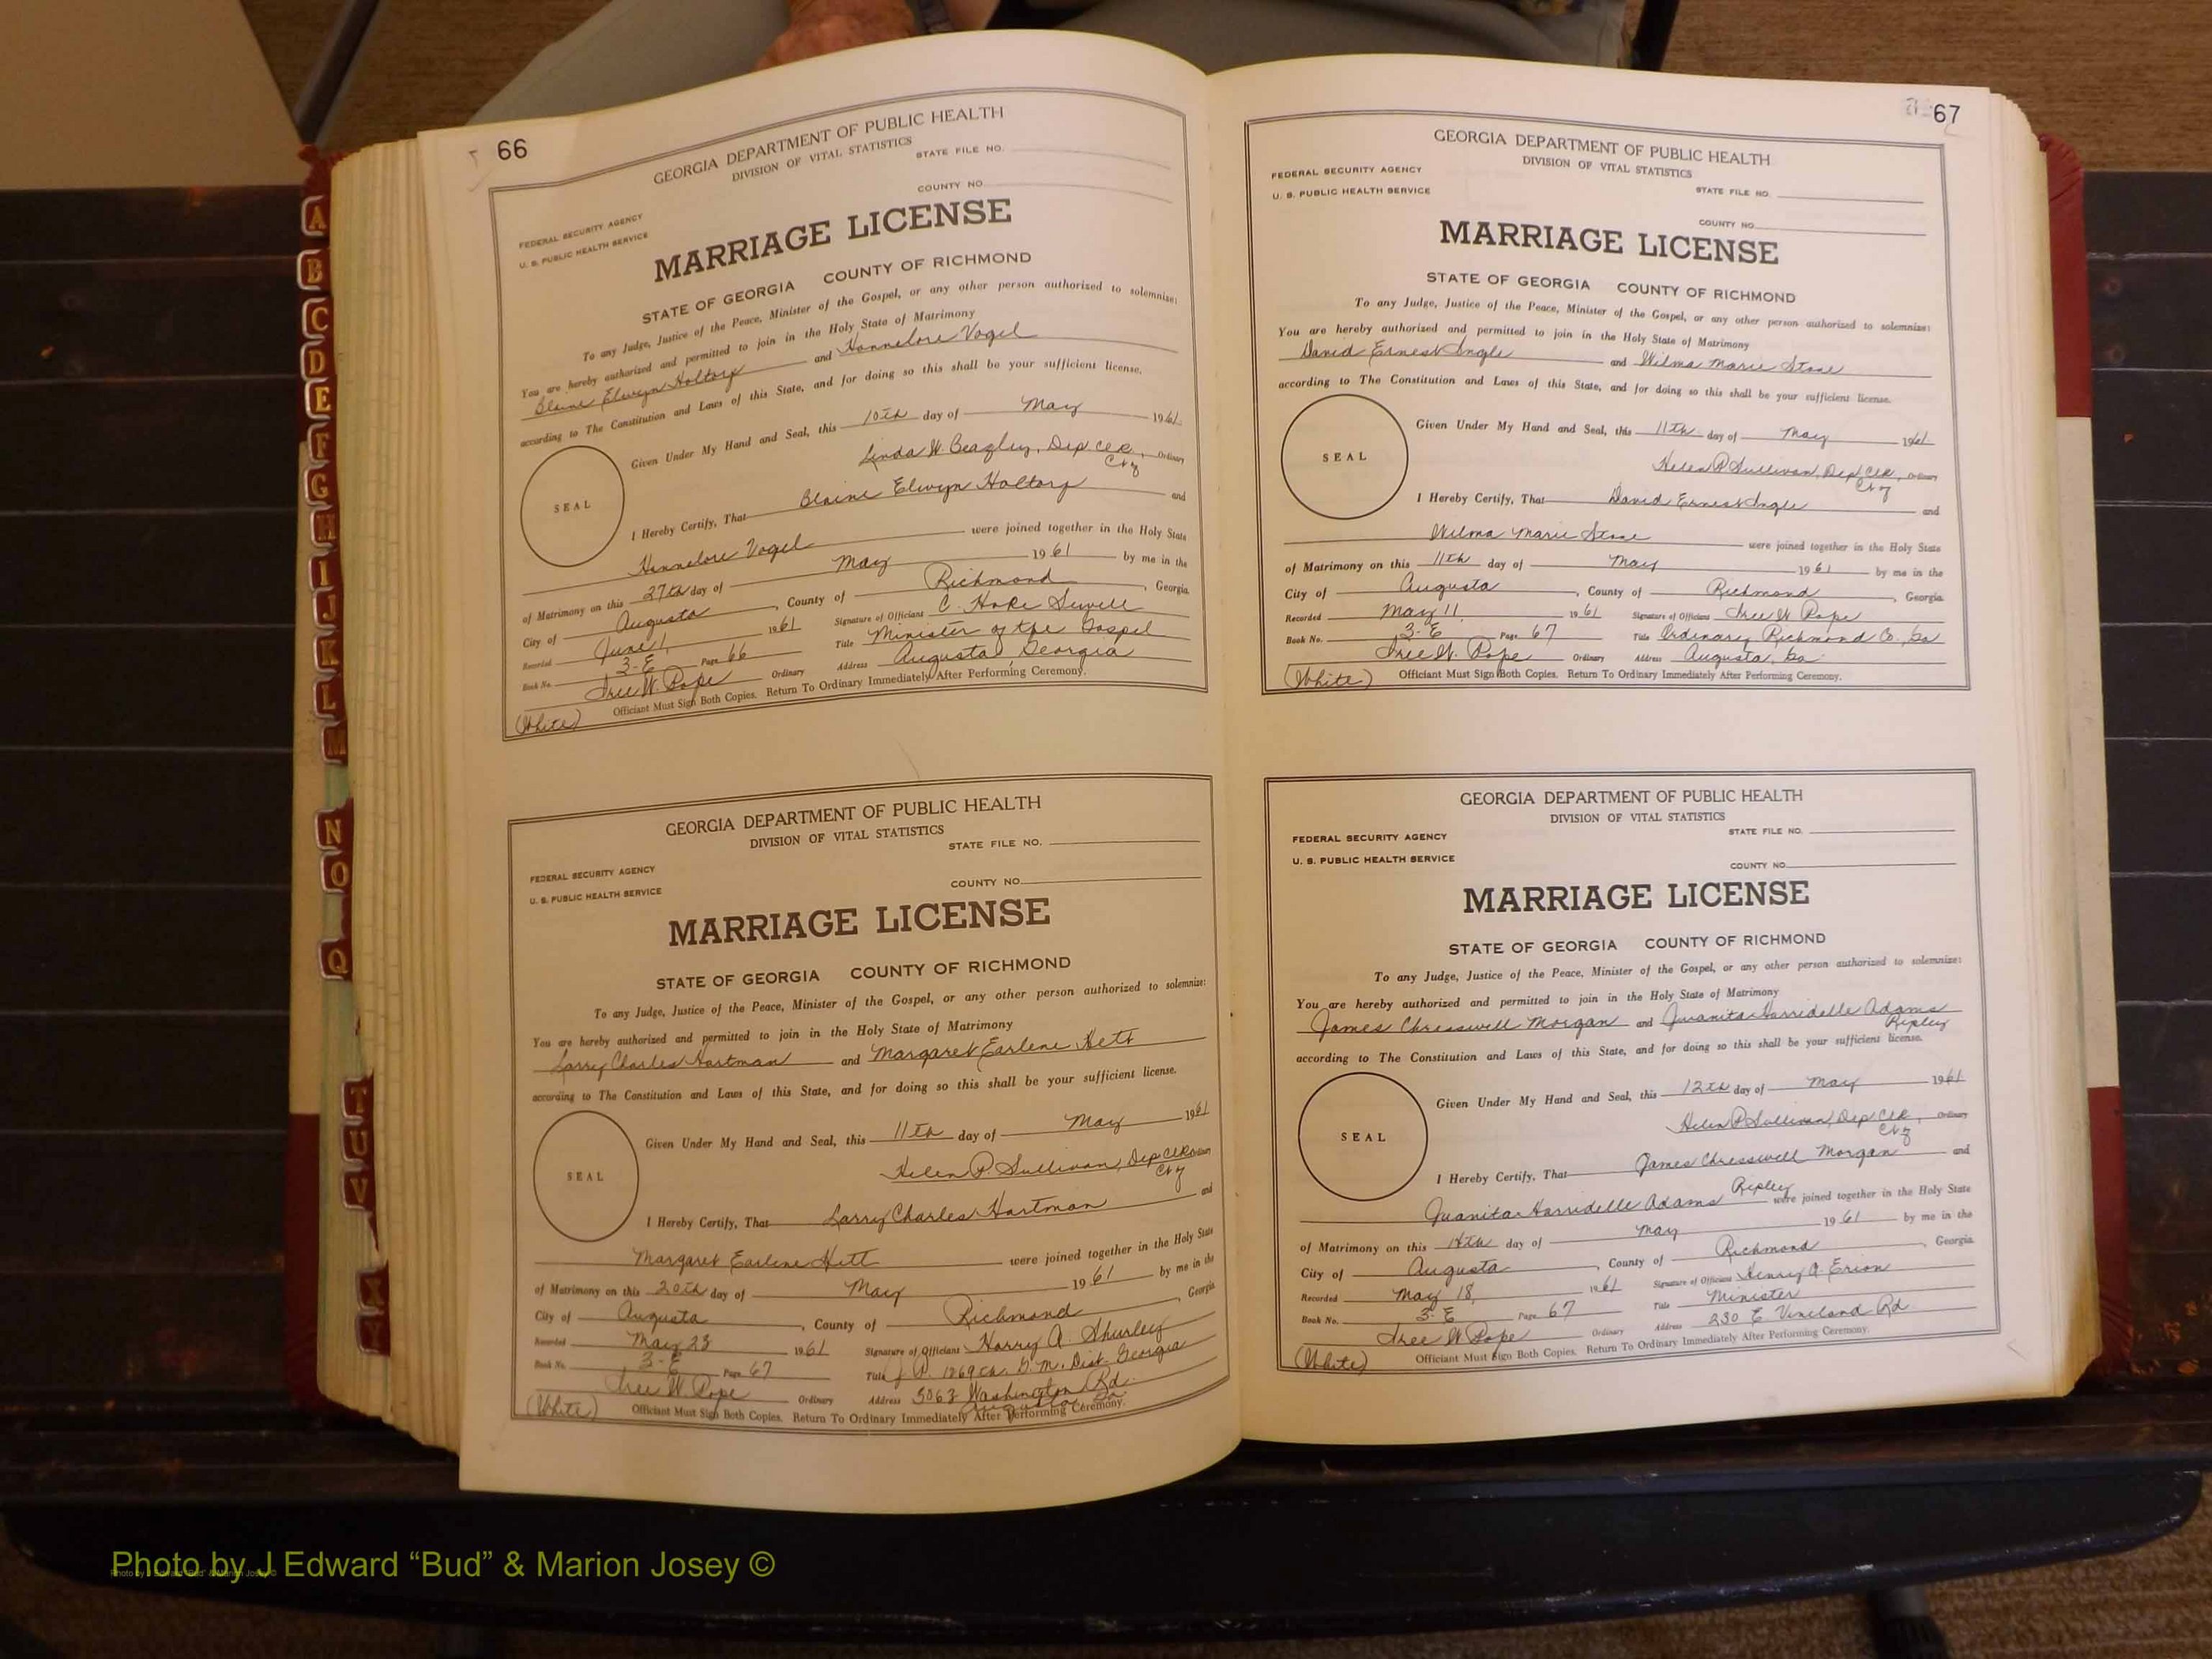 66
GEORGIA DEPARTMENT OF PUBLIC HEALTH
DIVISION OF VITAL STATISTICS
STATE FILE NO.
COUNTY NO.
FEDERAL SECURITY AGENCY
U. S. PUBLIC HEALTH SERVICE
MARRIAGE LICENSE
STATE OF GEORGIA COUNTY OF RICHMOND
To any Judge, Justice of the Peace, Minister of the Gospel, or any other person authorized to solemnize:
You are hereby authorized and permitted to join in the Holy State of Matrimony
Blaine Elwyn Holtorf and Hannelore Vogel
according to The Constitution and Laws of this State, and for doing so this shall be your sufficient license.
Given Under My Hand and Seal, this 10th day of May 1961
SEAL
Linda W. Beazley, Dep Clk, Ordinary
Cty
I Hereby Certify, That Blaine Elwyn Holtorf and
Hannelore Vogel were joined together in the Holy State
of Matrimony on this 27th day of May 1961 by me in the
City of Augusta, County of Richmond, Georgia.
Recorded June 1, 1961 Signature of Officiant C. Hoke Sewell
Book No. 3-E Page 66 Title Minister of the Gospel
Tree W. Pope Ordinary Address Augusta, Georgia
(White) Officiant Must Sign Both Copies. Return To Ordinary Immediately After Performing Ceremony.
GEORGIA DEPARTMENT OF PUBLIC HEALTH
DIVISION OF VITAL STATISTICS
STATE FILE NO.
FEDERAL SECURITY AGENCY
U. S. PUBLIC HEALTH SERVICE
COUNTY NO.
MARRIAGE LICENSE
STATE OF GEORGIA COUNTY OF RICHMOND
To any Judge, Justice of the Peace, Minister of the Gospel, or any other person authorized to solemnize:
You are hereby authorized and permitted to join in the Holy State of Matrimony
Larry Charles Hartman and Margaret Earlene Hett
according to The Constitution and Laws of this State, and for doing so this shall be your sufficient license.
Given Under My Hand and Seal, this 11th day of May 1961
SEAL
Helen P. Sullivan, Dep Clk Ordinary
Cty
I Hereby Certify, That Larry Charles Hartman and
Margaret Earlene Hett were joined together in the Holy State
of Matrimony on this 20th day of May 1961 by me in the
City of Augusta, County of Richmond, Georgia
Recorded May 23 1961 Signature of Officiant Harry A. Shurley
Book No. 3-E Page 67 Title J.P. 1269th. G.M. Dist. Georgia
Tree W Pope Ordinary Address 3063 Washington Rd.
Augusta Ga.
(White) Officiant Must Sign Both Copies. Return To Ordinary Immediately After Performing Ceremony.
67
GEORGIA DEPARTMENT OF PUBLIC HEALTH
DIVISION OF VITAL STATISTICS
FEDERAL SECURITY AGENCY
U. S. PUBLIC HEALTH SERVICE
STATE FILE NO.
COUNTY NO.
MARRIAGE LICENSE
STATE OF GEORGIA COUNTY OF RICHMOND
To any Judge, Justice of the Peace, Minister of the Gospel, or any other person authorized to solemnize:
You are hereby authorized and permitted to join in the Holy State of Matrimony
David Ernest Ingle and Wilma Marie Stone
according to The Constitution and Laws of this State, and for doing so this shall be your sufficient license.
Given Under My Hand and Seal, this 11th day of May 1961
SEAL
Helen P Sullivan, Dep Clk, Ordinary
Cty
I Hereby Certify, That David Ernest Ingle and
Wilma Marie Stone were joined together in the Holy State
of Matrimony on this 11th day of May 1961 by me in the
City of Augusta, County of Richmond, Georgia.
Recorded May 11 1961 Signature of Officiant Tree W Pope
Book No. 3-E Page 67 Title Ordinary Richmond Co. Ga
Tree W. Pope Ordinary Address Augusta, Ga.
(White) Officiant Must Sign Both Copies. Return To Ordinary Immediately After Performing Ceremony.
GEORGIA DEPARTMENT OF PUBLIC HEALTH
DIVISION OF VITAL STATISTICS
STATE FILE NO.
FEDERAL SECURITY AGENCY
U. S. PUBLIC HEALTH SERVICE
COUNTY NO.
MARRIAGE LICENSE
STATE OF GEORGIA COUNTY OF RICHMOND
To any Judge, Justice of the Peace, Minister of the Gospel, or any other person authorized to solemnize:
You are hereby authorized and permitted to join in the Holy State of Matrimony
James Chresswell Morgan and Juanita Harridelle Adams
Ripley
according to The Constitution and Laws of this State, and for doing so this shall be your sufficient license.
Given Under My Hand and Seal, this 12th day of May 1961
SEAL
Helen P Sullivan, Dep Clk, Ordinary
Cty
I Hereby Certify, That James Chresswell Morgan and
Juanita Harridelle Adams Ripley were joined together in the Holy State
of Matrimony on this 14th day of May 1961 by me in the
City of Augusta, County of Richmond, Georgia
Recorded May 18, 1961 Signature of Officiant Henry A. Erion
Book No. 3-E Page 67 Title Minister
Tree W Pope Ordinary Address 230 E Vineland Rd
(White) Officiant Must Sign Both Copies. Return To Ordinary Immediately After Performing Ceremony.
A
B
C
D
E
F
G
H
I
J
K
L
M
N
O
Q
T
U
V
X
Y
Photo by J Edward “Bud” & Marion Josey ©
Photo by J Edward "Bud" & Marion Josey ©